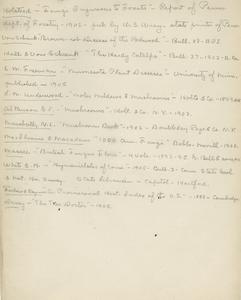 Holsted - Fungi Injurious to Forests - Report of Penn
dept. of Forestry - 1902 - pub by W.S. Wray - state printer of Penn
Von Schrenk
Von Schrenk - "The Hardy Catalpa" - Bull. 37 - 1902 -
E. M. Freeman - "Minnesota Plant Diseases" - University of Minn.
published in 1905
L. M. Underwood - "Molds Mildews & Mushrooms" - Holt & Co
Atkinson G.F. "Mushrooms" - Holt & Co. N.Y. - 1903.
Marshall, N.L. "Mushroom Book" - 1902 - Doubleday Page & Co. N.Y.
McIlvaine & Macadam "1000 Am. Fungi" Bobbs. Merrill - 1902.
Massee "British Fungus Flora" - 4 vols. - 1892-95
White E. A. - "Hymeniales of Conn" - 1905 - Bull. 3 - Conn. State Geol.
& Nat. His. Survey. State Librarian - Capitol - Hartford.
Farlow & Seymour Provisional Host Index of the U.S. - 1888 - Cambridge
"The Tree Doctor" - 1905.